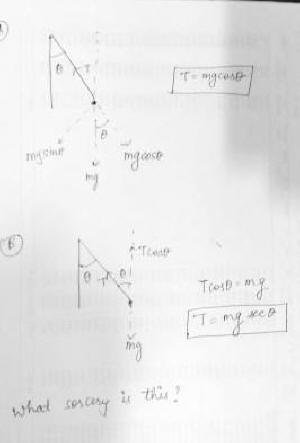 A
θ T
T = mgcosθ
θ
mgsinθ mgcosθ
mg
B
Tcosθ
θ T θ
Tcosθ = mg
T = mg secθ
mg
What sorcery is this?